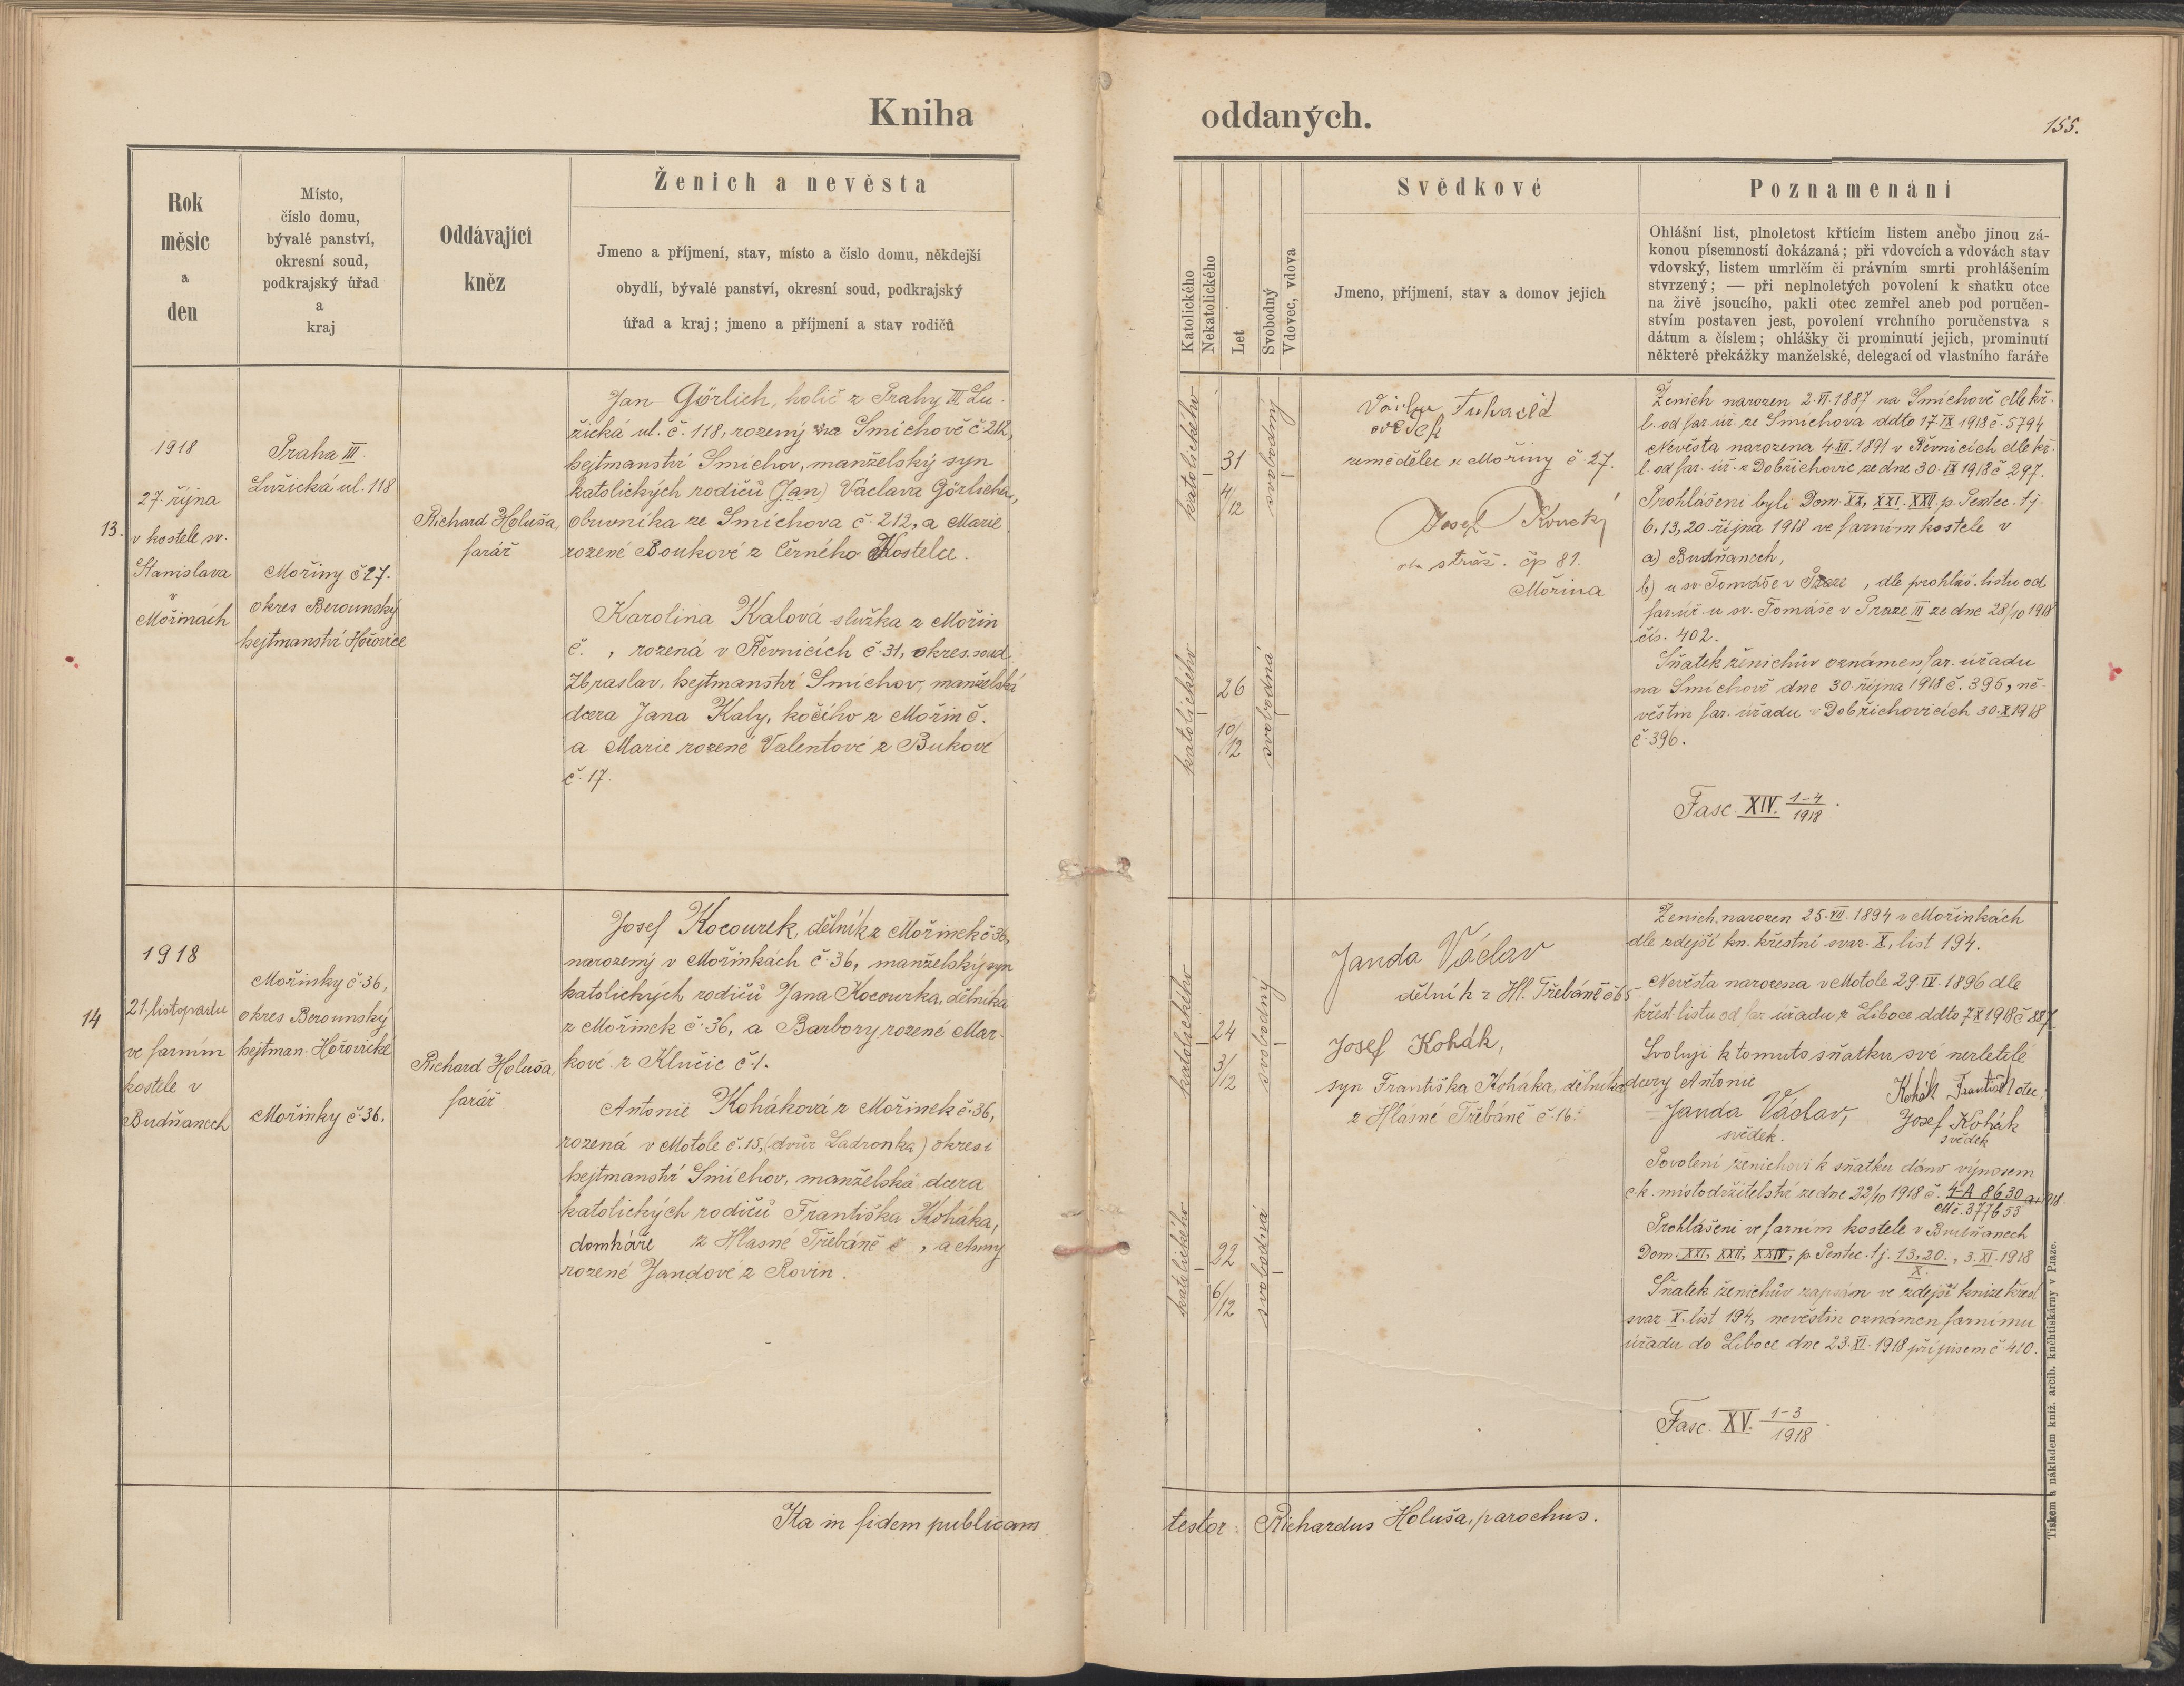 Kniha
oddaných.
155.
Rok
měsíc
a
den
Místo,
číslo domu,
bývalé panství,
okresní soud,
podkrajský úřad
a
kraj
Oddávající
kněz
Ženich a nevěsta
Jmeno a příjmení, stav, místo a číslo domu, někdejší
obydlí, bývalé panství, okresní soud, podkrajský
úřad a kraj; jmeno a příjmení a stav rodičů
Katolického
Nekatolického
Let
Svobodný
Vdovec, vdova
Svědkové
Jmeno, příjmení, stav a domov jejich
Poznamenání
Ohlášní list, plnoletost křtícím listem anebo jinou zá-
konou písemností dokázaná; při vdovcích a vdovách stav
vdovský, listem umrlčím či právním smrti prohlášením
stvrzený; — při neplnoletých povolení k sňatku otce
na živě jsoucího, pakli otec zemřel aneb pod poručen-
stvím postaven jest, povolení vrchního poručenstva s
dátum a číslem; ohlášky či prominutí jejich, prominutí
některé překážky manželské, delegací od vlastního faráře
13.
1918
27. října
v kostele sv.
Stanislava
v
Mořinách
Praha III.
Lužická ul. 118
Mořiny č 27.
okres Berounský
hejtmanství Hořovice
Richard Holuša,
farář
Jan Görlich, holič z Prahy III Lu-
žická ul. č. 118, rozený na Smíchově č 212,
hejtmanství Smíchov, manželský syn
katolických rodičů (Jan) Václava Görlicha,
obuvníka ze Smíchova č. 212, a Marie
rozené Boukové z Černého Kostelce.
Karolina Kalová služka z Mořin
č. , rozená v Řevnicích č. 31, okres. soud
Zbraslav, hejtmanství Smíchov, manželská
dcera Jana Kaly, kočího z Mořin č.
a Marie rozené Valentové z Bukové
č. 17.
katolického
31
4/12
svobodný
katolického
26
10/12
svobodná
svědek
zemědělec z Mořiny č. 27.
Josef
stráž. čp 81.
Mořina
Ženich narozen 2. VI. 1887 na Smíchově dle kř.
l. od far. úř. ze Smíchova ddto 17. IX 1918 č. 5794
Nevěsta narozena 4. XII. 1891 v Řevnicích dle kř.
l. od far. úř. z Dobřichovic ze dne 30. IX 1918 č 297.
Prohlášeni byli Dom. XX, XXI. XXII. p. Pentec. t. j.
6, 13, 20. října 1918 ve farním kostele v
a) Budňanech,
b) u sv. Tomáše v Praze, dle prohláš. listu od
far. úř. u sv. Tomáše v Praze III ze dne 28/10 1918
čís. 402.
Sňatek ženichův oznámen far. úřadu
na Smíchově dne 30. října 1918 č. 395, ne-
věstin far. úřadu v Dobřichovicích 30. X 1918
č. 396.
Fasc. XIV. 1-4/1918.
14
1918
21. listopadu
ve farním
kostele v
Budňanech
Mořinky č. 36,
okres Berounský
hejtman. Hořovické
Mořinky č 36.
Richard Holuša,
farář
Josef Kocourek, dělník z Mořinek č 36,
narozený v Mořinkách č. 36, manželský syn
katolických rodičů Jana Kocourka, dělníka
z Mořinek č. 36, a Barbory rozené Mar-
kové z Klučic č. 1.
Antonie Koháková z Mořinek č. 36,
rozená v Motole č. 15, (dvůr Ladronka) okres i
hejtmanství Smíchov, manželská dcera
katolických rodičů Františka Koháka,
domkáře z Hlásné Třebáně č , a Anny
rozené Jandové z Rovin.
katolického
24
3/12
svobodný
katolického
22
6/12
svobodná
Janda Václav
dělník z Hl. Třebáně č 65
Josef Kohák,
syn Františka Koháka, dělníka
z Hlásné Třebáně č. 16.
Ženich narozen 25. VII. 1894 v Mořinkách
dle zdejší kn. křestní svaz. X, list 194.
Nevěsta narozena v Motole 29. IV. 1896 dle
křest. listu od far. úřadu z Liboce ddto 7 X 1918 č 887.
Svoluji k tomuto sňatku své nezletilé
dcery Antonie
Kohák František otec,
Janda Václav,
svědek.
Josef Kohák
svědek
Povolení ženichovi k sňatku dáno výnosem
c. k. místodržitelství ze dne 22/10 1918 č. 4-A 8630 ai 1918.
Mč. 377653
Prohlášeni ve farním kostele v Budňanech
Dom. XXI, XXII, XXIV, p. Pentec. t. j. 13., 20. X., 3. XI. 1918
Sňatek ženichův zapsán ve zdejší knize křest
svaz. X. list 194, nevěstin oznámen farnímu
úřadu do Liboce dne 23. XI. 1918 přípisem č. 410.
Fasc. XV. 1-3/1918.
Ita in fidem publicam
testor: Richardus Holuša, parochus.
Tiskem a nákladem kníž. arcib. knihtiskárny v Praze.